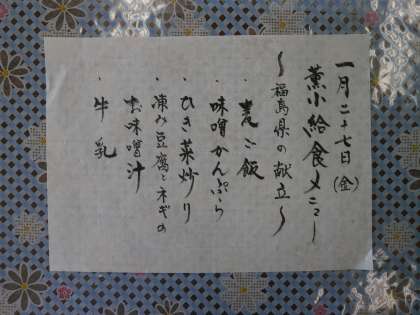 一月二十七日(金)
薫小給食メニュー
〜福島県の献立〜
・麦ご飯
・味噌かんぷら
・ひき菜炒り
・凍み豆腐とネギの
お味噌汁
・牛乳